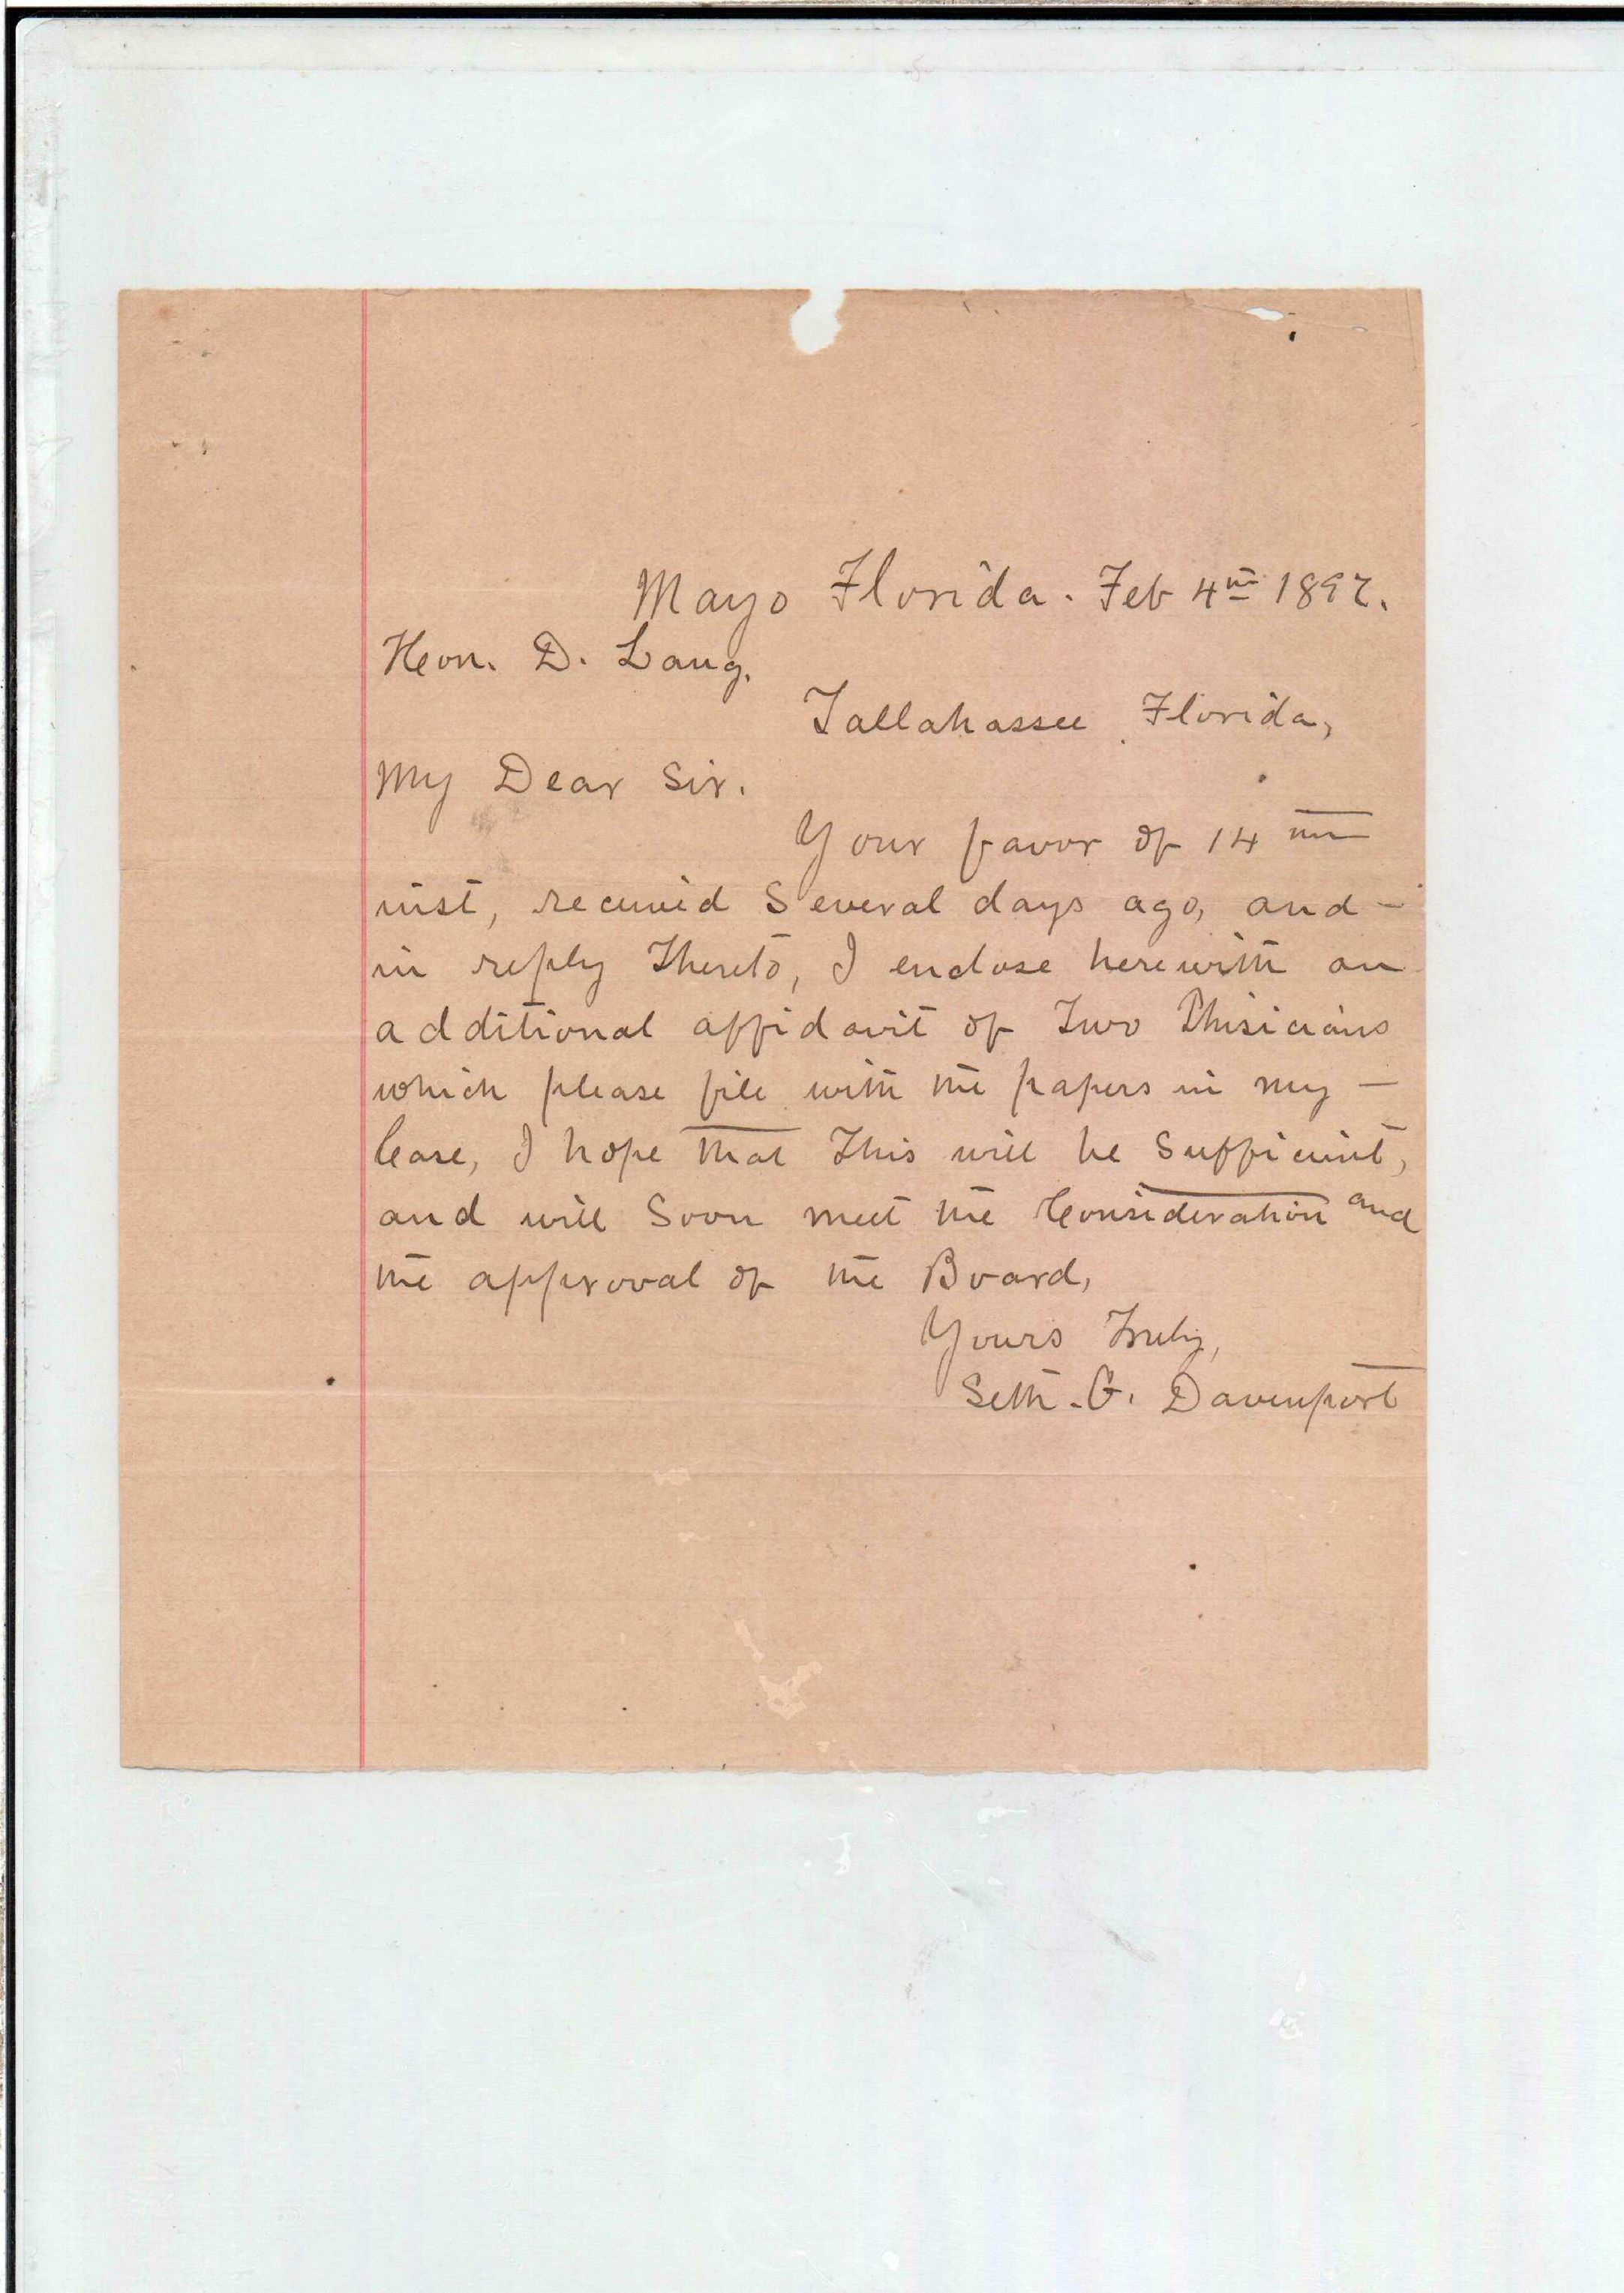 Mayo Florida. Feb 4th 1897.
Hon. D. Lang.
Tallahassee, Florida,
My Dear Sir.
Your favor of 14th
inst, received Several days ago, and -
in reply Thereto, I enclose herewith an
additional affidavit of Two Phisicians
which please file with the papers in my -
Case, I hope that This will be Sufficient,
and will Soon meet the Consideration and
the approval of the Board,
Yours Truly,
Seth. G. Davenport